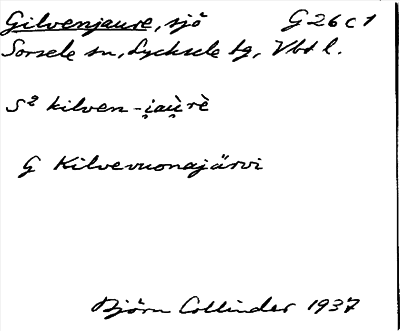 Gilvenjaure, sjö G 26 c 1
Sorsele sn, Lycksele tg, Vbtl.
S² kilven-i̯aù̯rè
G Kilvevuonajärvi
Björn Collinder 1937